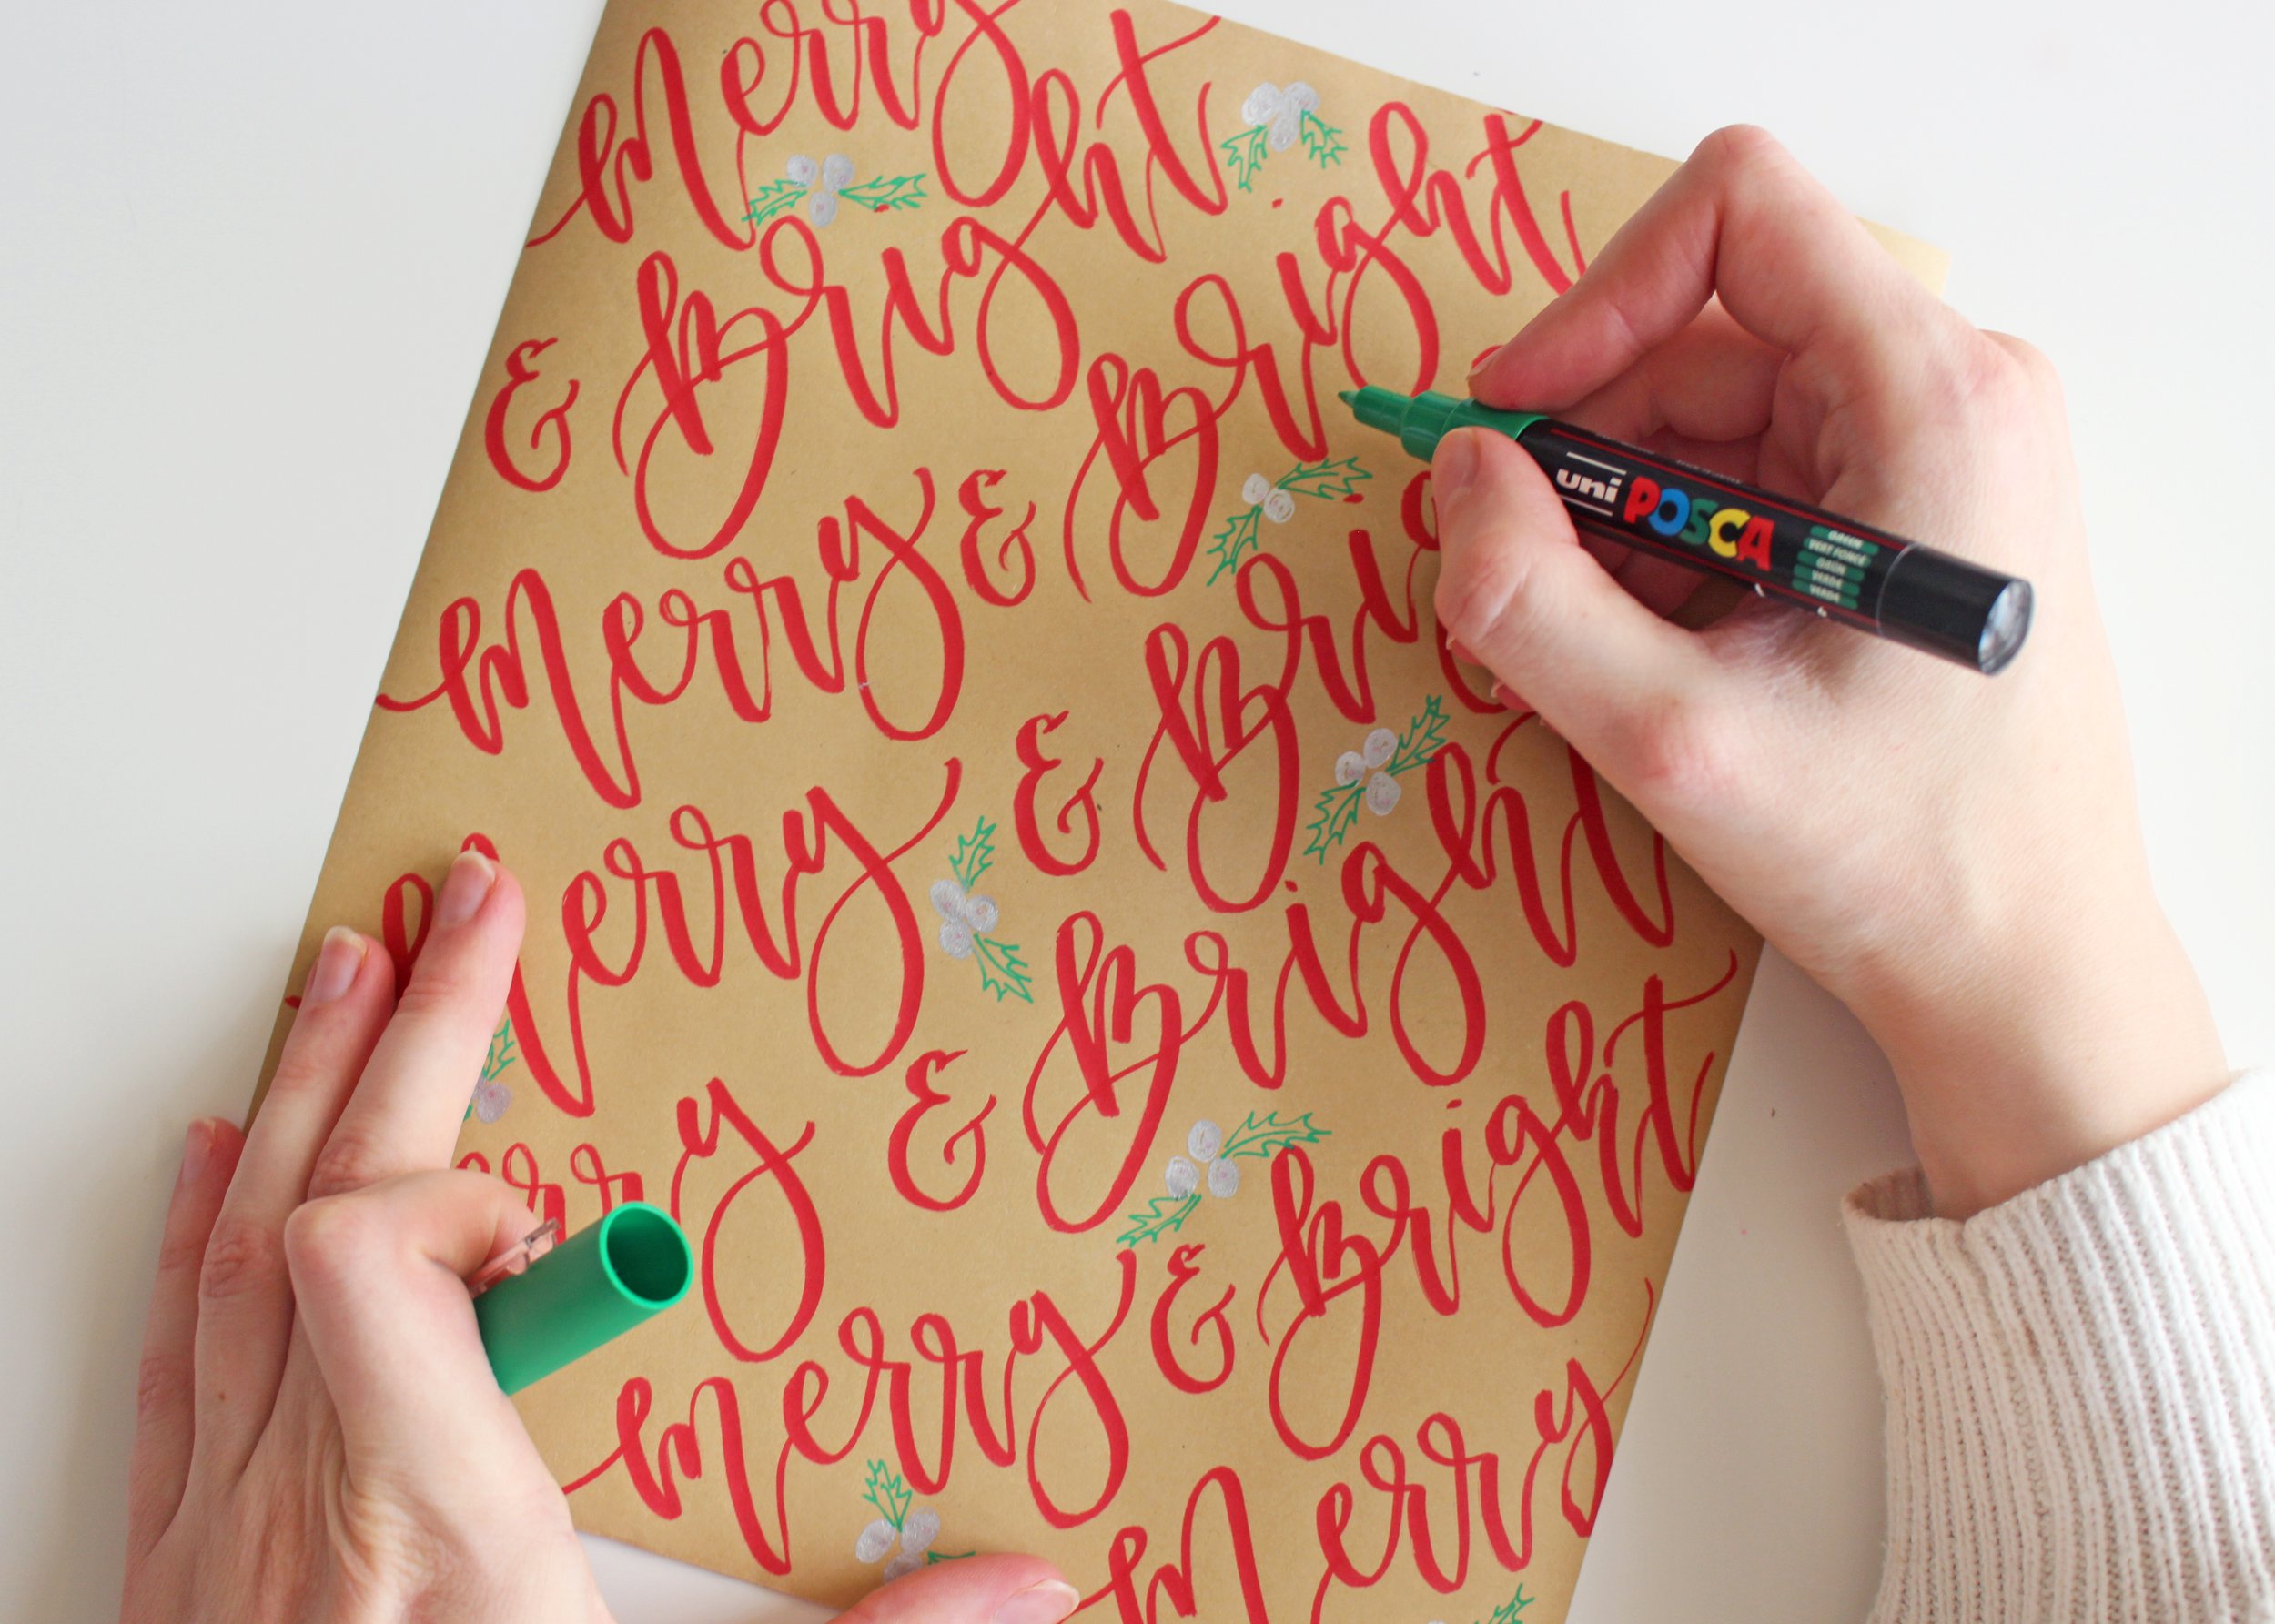 Merry
& Bright
Bright
Merry &
Merry & Brig
ht
& Bright
erry
Merry & Bright
Merry
uni POSCA
GREEN
VERT FONCÉ
GRÜN
VERDE
VERDE